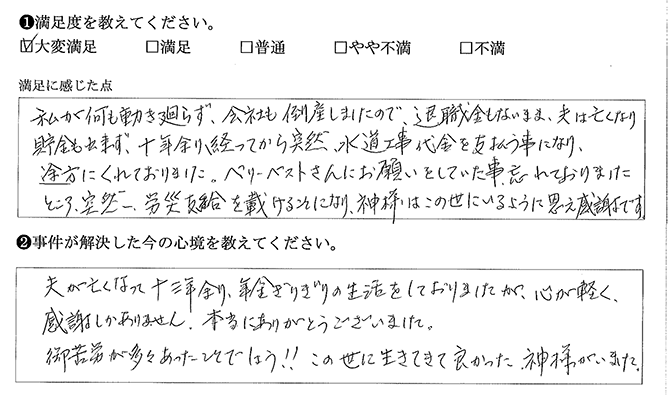 ❶満足度を教えてください。
☑大変満足 □満足 □普通 □やや不満 □不満
満足に感じた点
私が何も動き廻らず、会社も倒産しましたので、退職金もないまま、夫は亡くなり
貯金も出来ず、十年余り経ってから突然、水道工事代金を支払う事になり、
途方にくれておりました。ベリーベストさんにお願いをしていた事、忘れておりました
ところ、突然、労災支給を載けることになり、神様はこの世にいるように思え感謝です
❷事件が解決した今の心境を教えてください。
夫が亡くなって十三年余り、年金ぎりぎりの生活をしておりましたが、心が軽く、
感謝しかありません。本当にありがとうございました。
御苦労が多々あったことでしょう!! この世に生きてきて良かった、神様がいました。